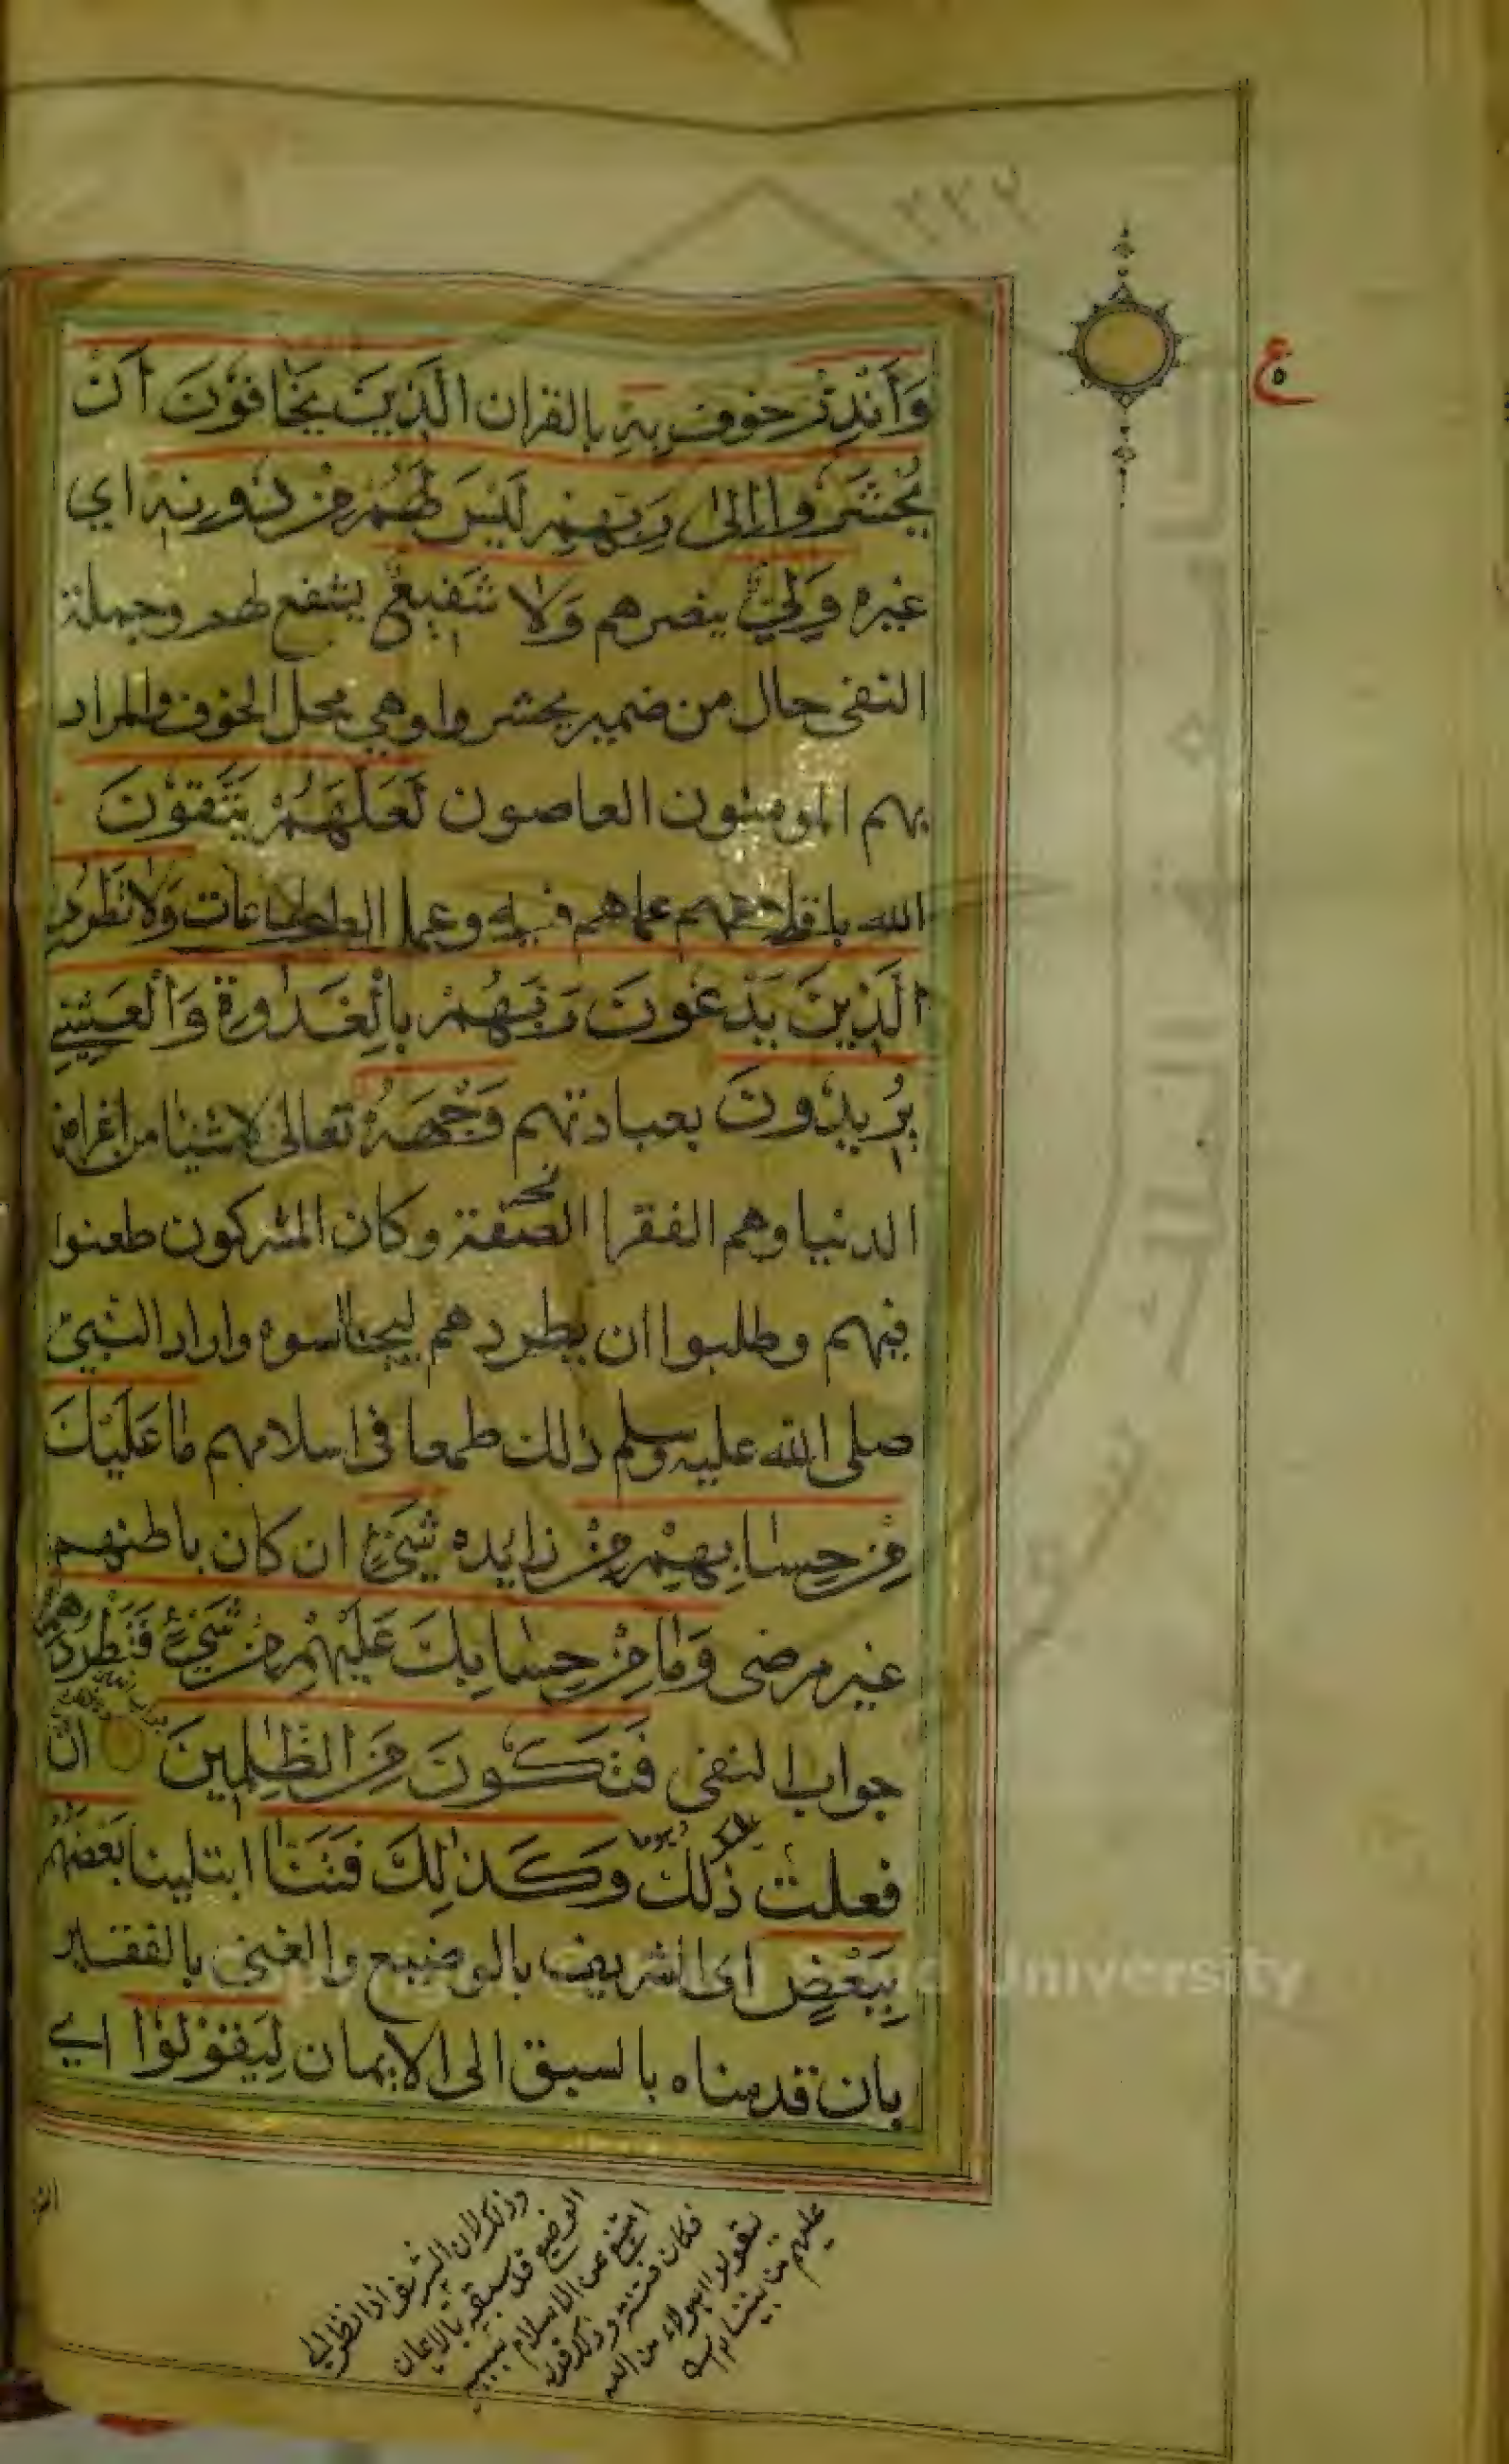 ٢٣٢
ع
وَأَنْذِرْ خوف بِهِ بالقران الَّذِينَ يَخَافُوْنَ اَنْ
يُحْشَرُوا إِلىٰ رَبِّهِمْ لَيْسَ لَهُمْ مِنْ دُوْنِهٖ اي
غيره وَلِيٌّ ينصرهم وَلَا شَفِيعٌ يشفع لهم وجملة
النفى حال من ضمير يحشروا وهي محل الخوف والمراد
بهم المومنون العاصون لَعَلَّهُمْ يَتَّقُوْنَ
الله باقلاعهم عماهم فيه وعمل الطاعات وَلَا تَطْرُدِ
الَّذِينَ يَدْعُونَ رَبَّهُمْ بِالْغَدٰوةِ وَالْعَشِيِّ
يُرِيْدُونَ بعبادتهم وَجْهَهُ تعالى لا شيئا من اغراض
الدنيا وهم الفقرا الصفة وكان المشركون طعنوا
فيهم وطلبوا ان يطردهم ليجالسوه واراد النبي
صلى الله عليه وسلم ذلك طمعا في اسلامهم مَا عَلَيْكَ
مِنْ حِسَابِهِمْ مِنْ زايده شَيْءٍ ان كان باطنهم
غير مرضى وَمَا مِنْ حِسَابِكَ عَلَيْهِمْ مِنْ شَيْءٍ فَتَطْرُدَهُمْ
جواب النفى فَتَكُونَ مِنَ الظّٰلِمِينَ ان
فعلت ذلك وَكَذٰلِكَ فَتَنَّا ابتلينا بَعْضَهُمْ
بِبَعْضٍ اى الشريف بالوضيع والغنى بالفقير
بان قدمناه بالسبق الى الايمان لِيَقُوْلُوْا اي
وذلك لان الشريف اذا نظر الى
الوضيع قد سبقه بالايمان
امتنع عن الاسلام بسببه
فكان فتنة وذلك قوله
ليقولوا اهولاء من الله
عليهم من بيننا
University